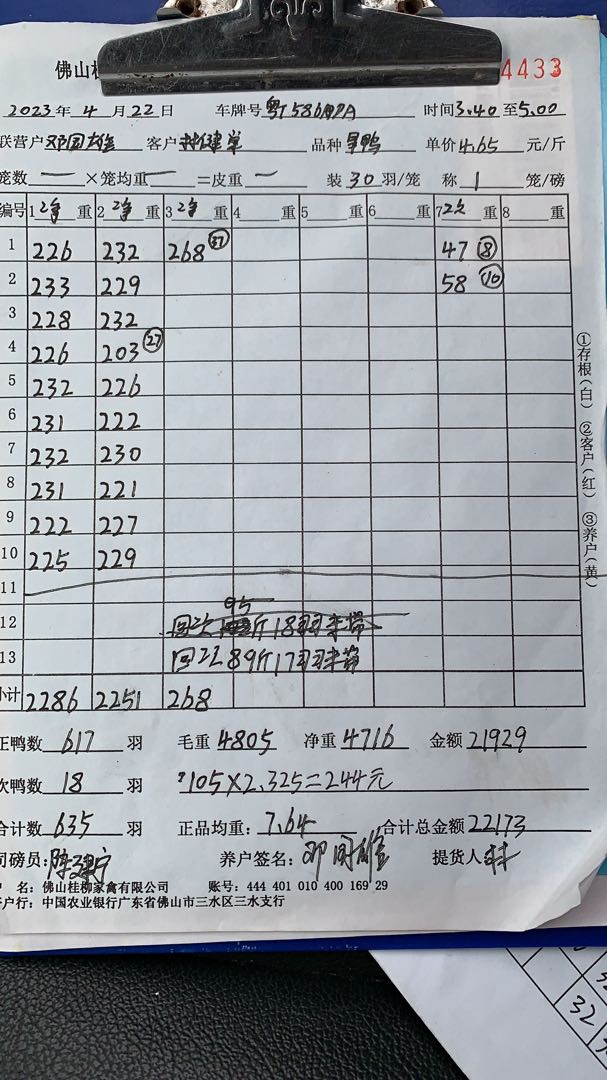 佛山桂
4433
2023年 4月22日 车牌号 时间3.40至5.00
联营户邓国雄 客户 品种 单价4.65元/斤
笼数 一 ×笼均重 一 =皮重 一 装30羽/笼 称1笼/磅
编号 1净重 2净重 3净重 4重 5重 6重 7次重 8重
1 226 232 268 (37) 47 (8)
2 233 229 58 (10)
3 228 232
4 226 203 (27)
5 232 226
6 231 222
7 232 230
8 231 221
9 222 227
10 225 229
11
95
12 回次 斤18羽未带
13 回次89斤17羽未带
小计 2286 2251 268
正鸭数617羽 毛重4805 净重4716 金额21929
次鸭数18羽 105×2.325=244元
合计数635羽 正品均重:7.64 合计总金额22173
司磅员:陈建宁 养户签名:邓国雄 提货人
户 名:佛山桂柳家禽有限公司 账号:444 401 010 400 169 29
开户行:中国农业银行广东省佛山市三水区三水支行
①存根(白) ②客户(红) ③养户(黄)
32